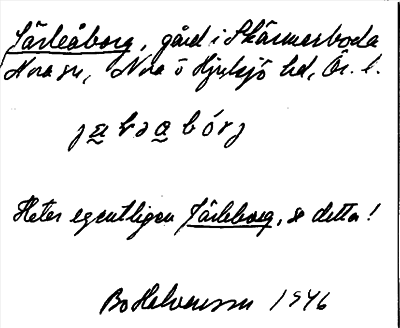 Järleåborg, gård i Skärmarboda
Nora sn, Nora o Hjulsjö hd, Ör. l.
Heter egentligen Järleborg, se detta!
Bo Helverson 1946